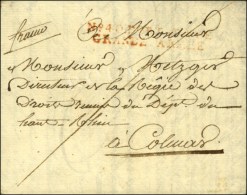 franco
Monsieur
GRANDE ARMÉE
Monsieur Metzger
Directeur de la Régie des
Droits réunis du Dépt. du
haut-Rhin
à Colmar